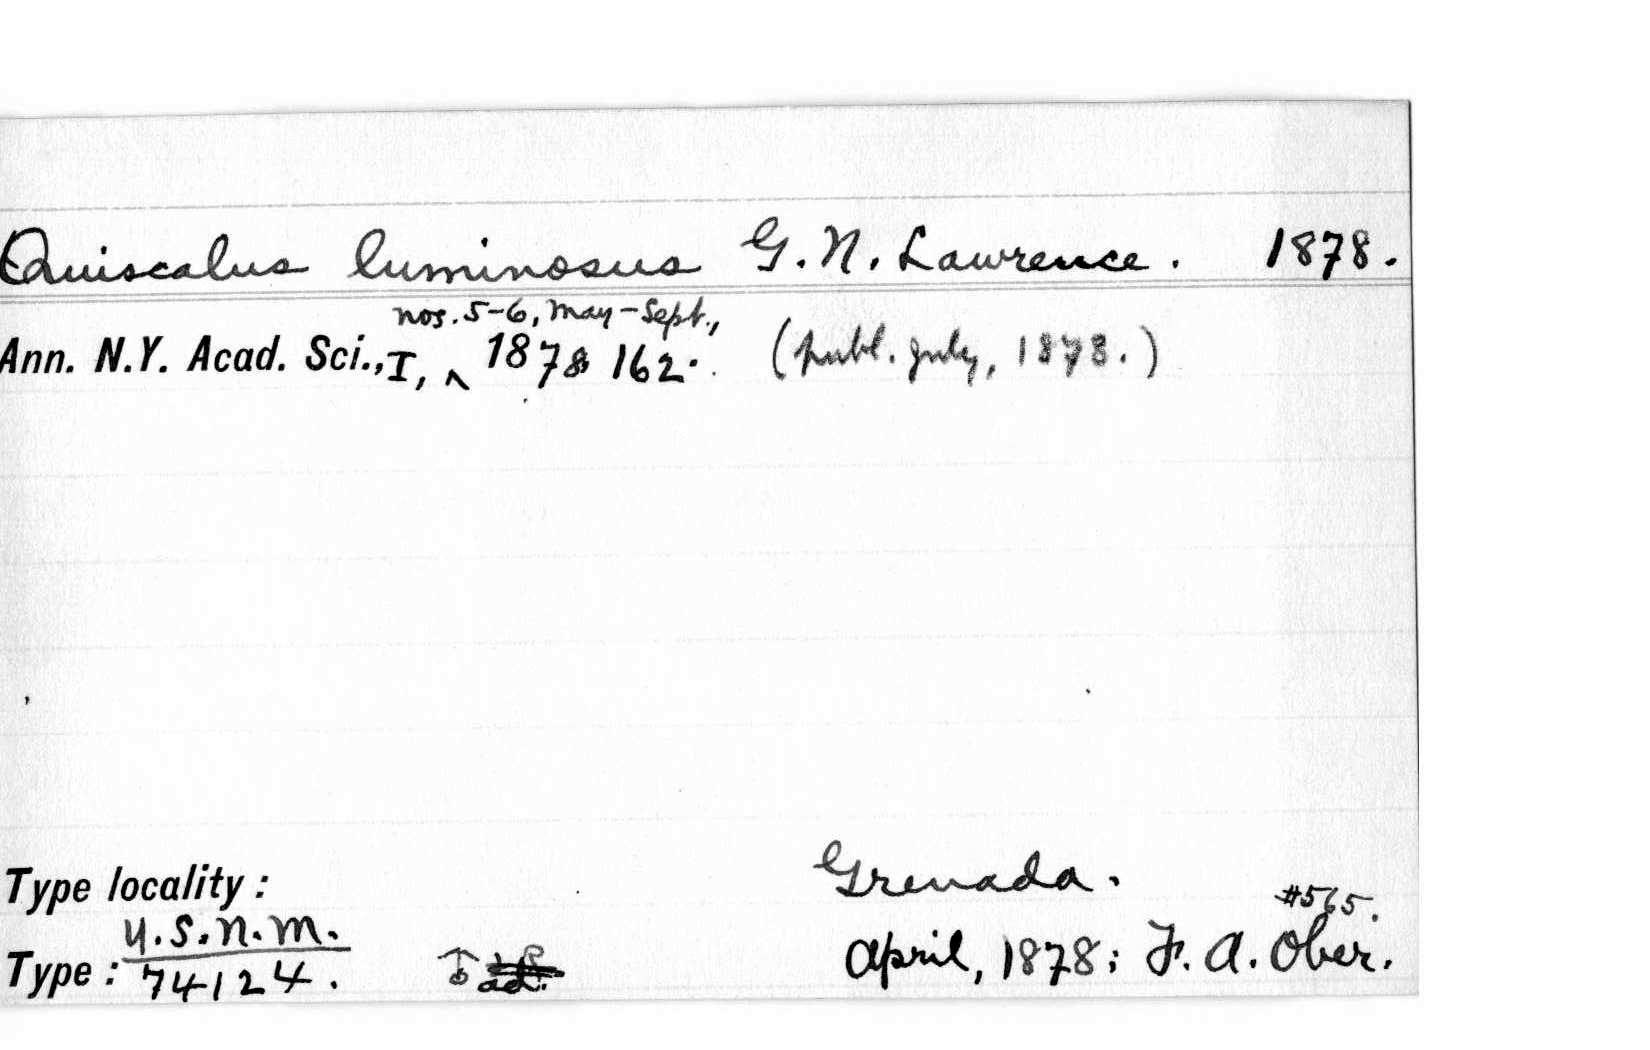 Quiscalus luminosus G. N. Lawrence. 1878.
nos. 5-6, May-Sept.,
Ann. N.Y. Acad. Sci., I, ^ 1878 162. (publ. July, 1878.)
Type locality: Grenada.
#565.
U.S.N.M.
Type: 74124. ♂ ad. April, 1878; F. A. Ober.